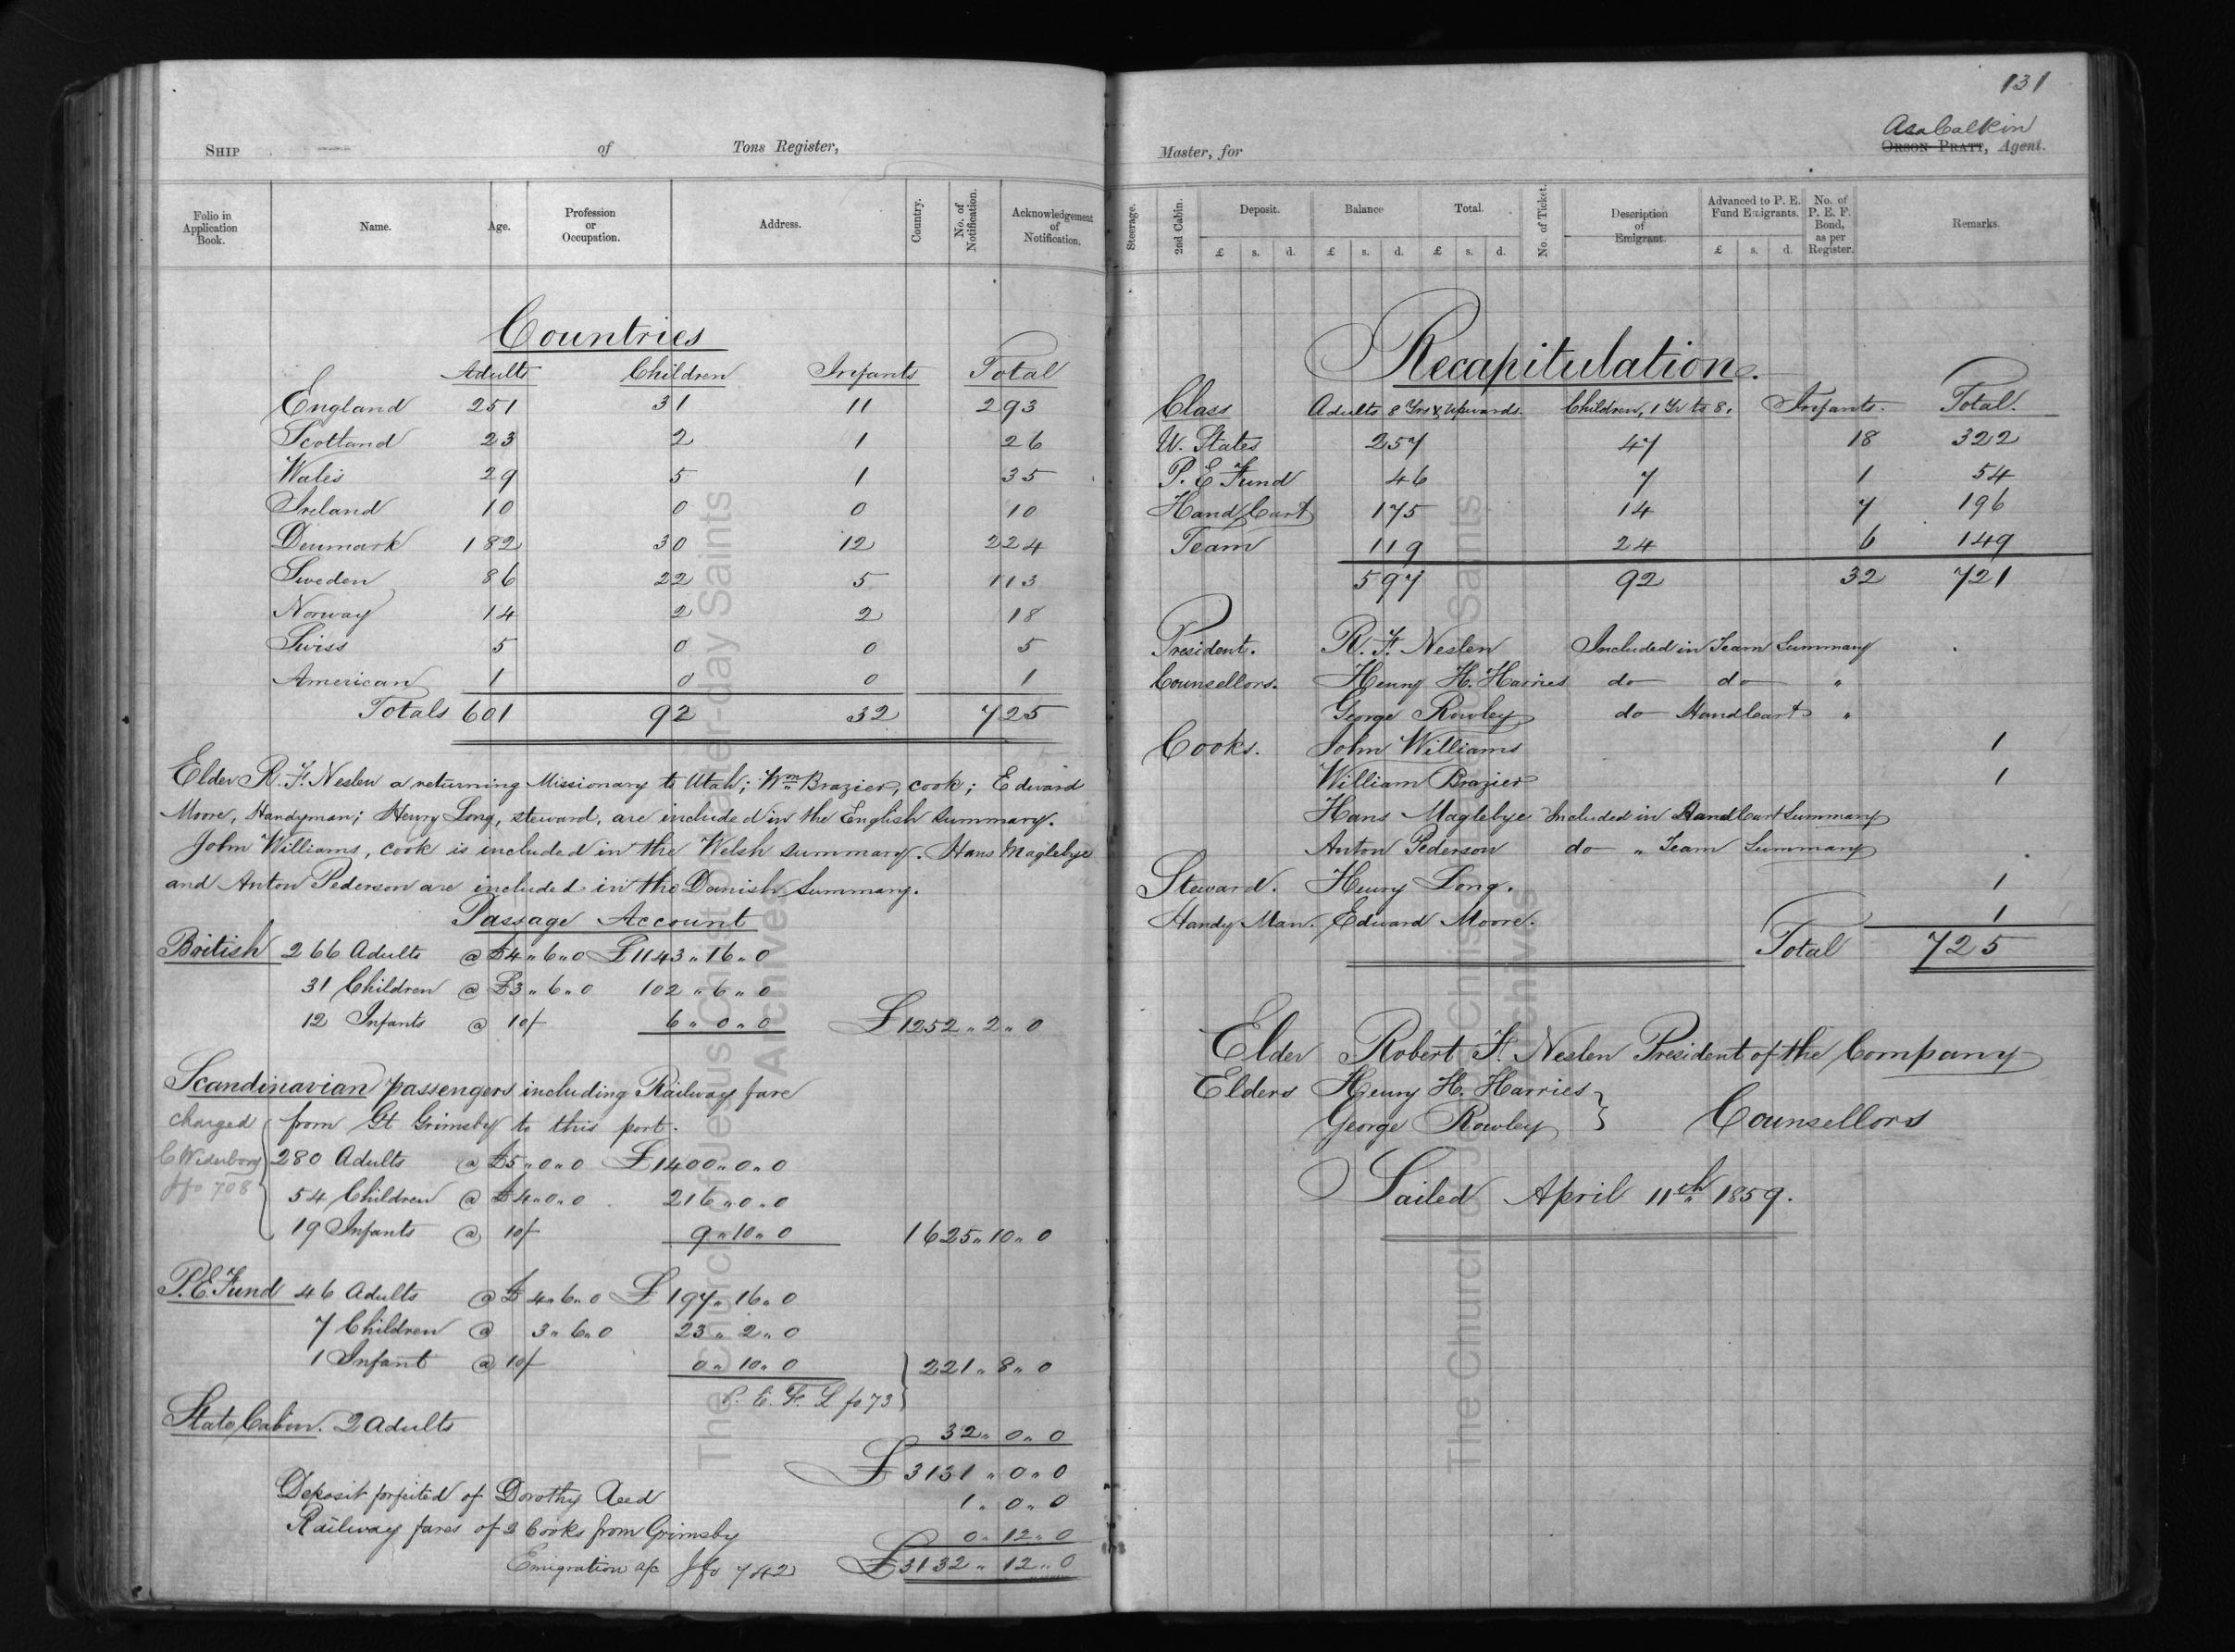 SHIP of Tons Register,
Folio in Application Book. Name. Age. Profession or Occupation. Address. Country. No. of Notification. Acknowledgement of Notification.
Countries
Adults Children Infants Total
England 251 31 11 293
Scotland 23 2 1 26
Wales 29 5 1 35
Ireland 10 0 0 10
Denmark 182 30 12 224
Sweden 86 22 5 113
Norway 14 2 2 18
Swiss 5 0 0 5
American 1 0 0 1
Totals 601 92 32 725
Elder R. F. Neslen a returning Missionary to Utah; Wm Brazier, cook; Edward
Moore, Handyman; Henry Long, steward, are included in the English Summary.
John Williams, cook is included in the Welsh Summary. Hans Maglebye
and Anton Pederson are included in the Danish Summary.
Passage Account
British 266 Adults @ £4 " 6 " 0 £1143 " 16 " 0
31 Children @ £3 " 6 " 0 102 " 6 " 0
12 Infants @ 10/- 6 " 0 " 0 £1252 " 2 " 0
Scandinavian passengers including Railway fare
charged from Gt Grimsby to this port.
C Widerborg 280 Adults @ £5 " 0 " 0 £1400 " 0 " 0
Jfo 708 54 Children @ £4 " 0 " 0 216 " 0 " 0
19 Infants @ 10/- 9 " 10 " 0 1625 " 10 " 0
P. E. Fund 46 Adults @ £4 " 6 " 0 £197 " 16 " 0
7 Children @ 3 " 6 " 0 23 " 2 " 0
1 Infant @ 10/- 0 " 10 " 0 221 " 8 " 0
P. E. F. L fo 73
State Cabin. 2 Adults 32 " 0 " 0
£3131 " 0 " 0
Deposit forfeited of Dorothy Reed 1 " 0 " 0
Railway fares of 2 Cooks from Grimsby 0 " 12 " 0
Emigration a/c Jfo 742 £3132 " 12 " 0
The Church of Jesus Christ of Latter-day Saints
Archives
131
Asa Calkin
Master, for ORSON PRATT, Agent.
Steerage. 2nd Cabin. Deposit. £ s. d. Balance £ s. d. Total. £ s. d. No. of Ticket. Description of Emigrant. Advanced to P. E. Fund Emigrants. £ s. d. No. of P. E. F. Bond, as per Register. Remarks.
Recapitulation.
Class Adults 8 Yrs & Upwards. Children, 1 Yr to 8. Infants. Total.
U. States 257 47 18 322
P. E Fund 46 7 1 54
Hand Cart 175 14 7 196
Team 119 24 6 149
597 92 32 721
President. R. F. Neslen Included in Team Summary
Counsellors. Henry H. Harries do do "
George Rowley do Hand Cart "
Cooks. John Williams 1
William Brazier 1
Hans Maglebye Included in Hand Cart Summary
Anton Pederson do " Team Summary
Steward. Henry Long. 1
Handy Man. Edward Moore. 1
Total 725
Elder Robert F. Neslen President of the Company
Elders Henry H. Harries
George Rowley } Counsellors
Sailed April 11th 1859.
The Church of Jesus Christ of Latter-day Saints
Archives